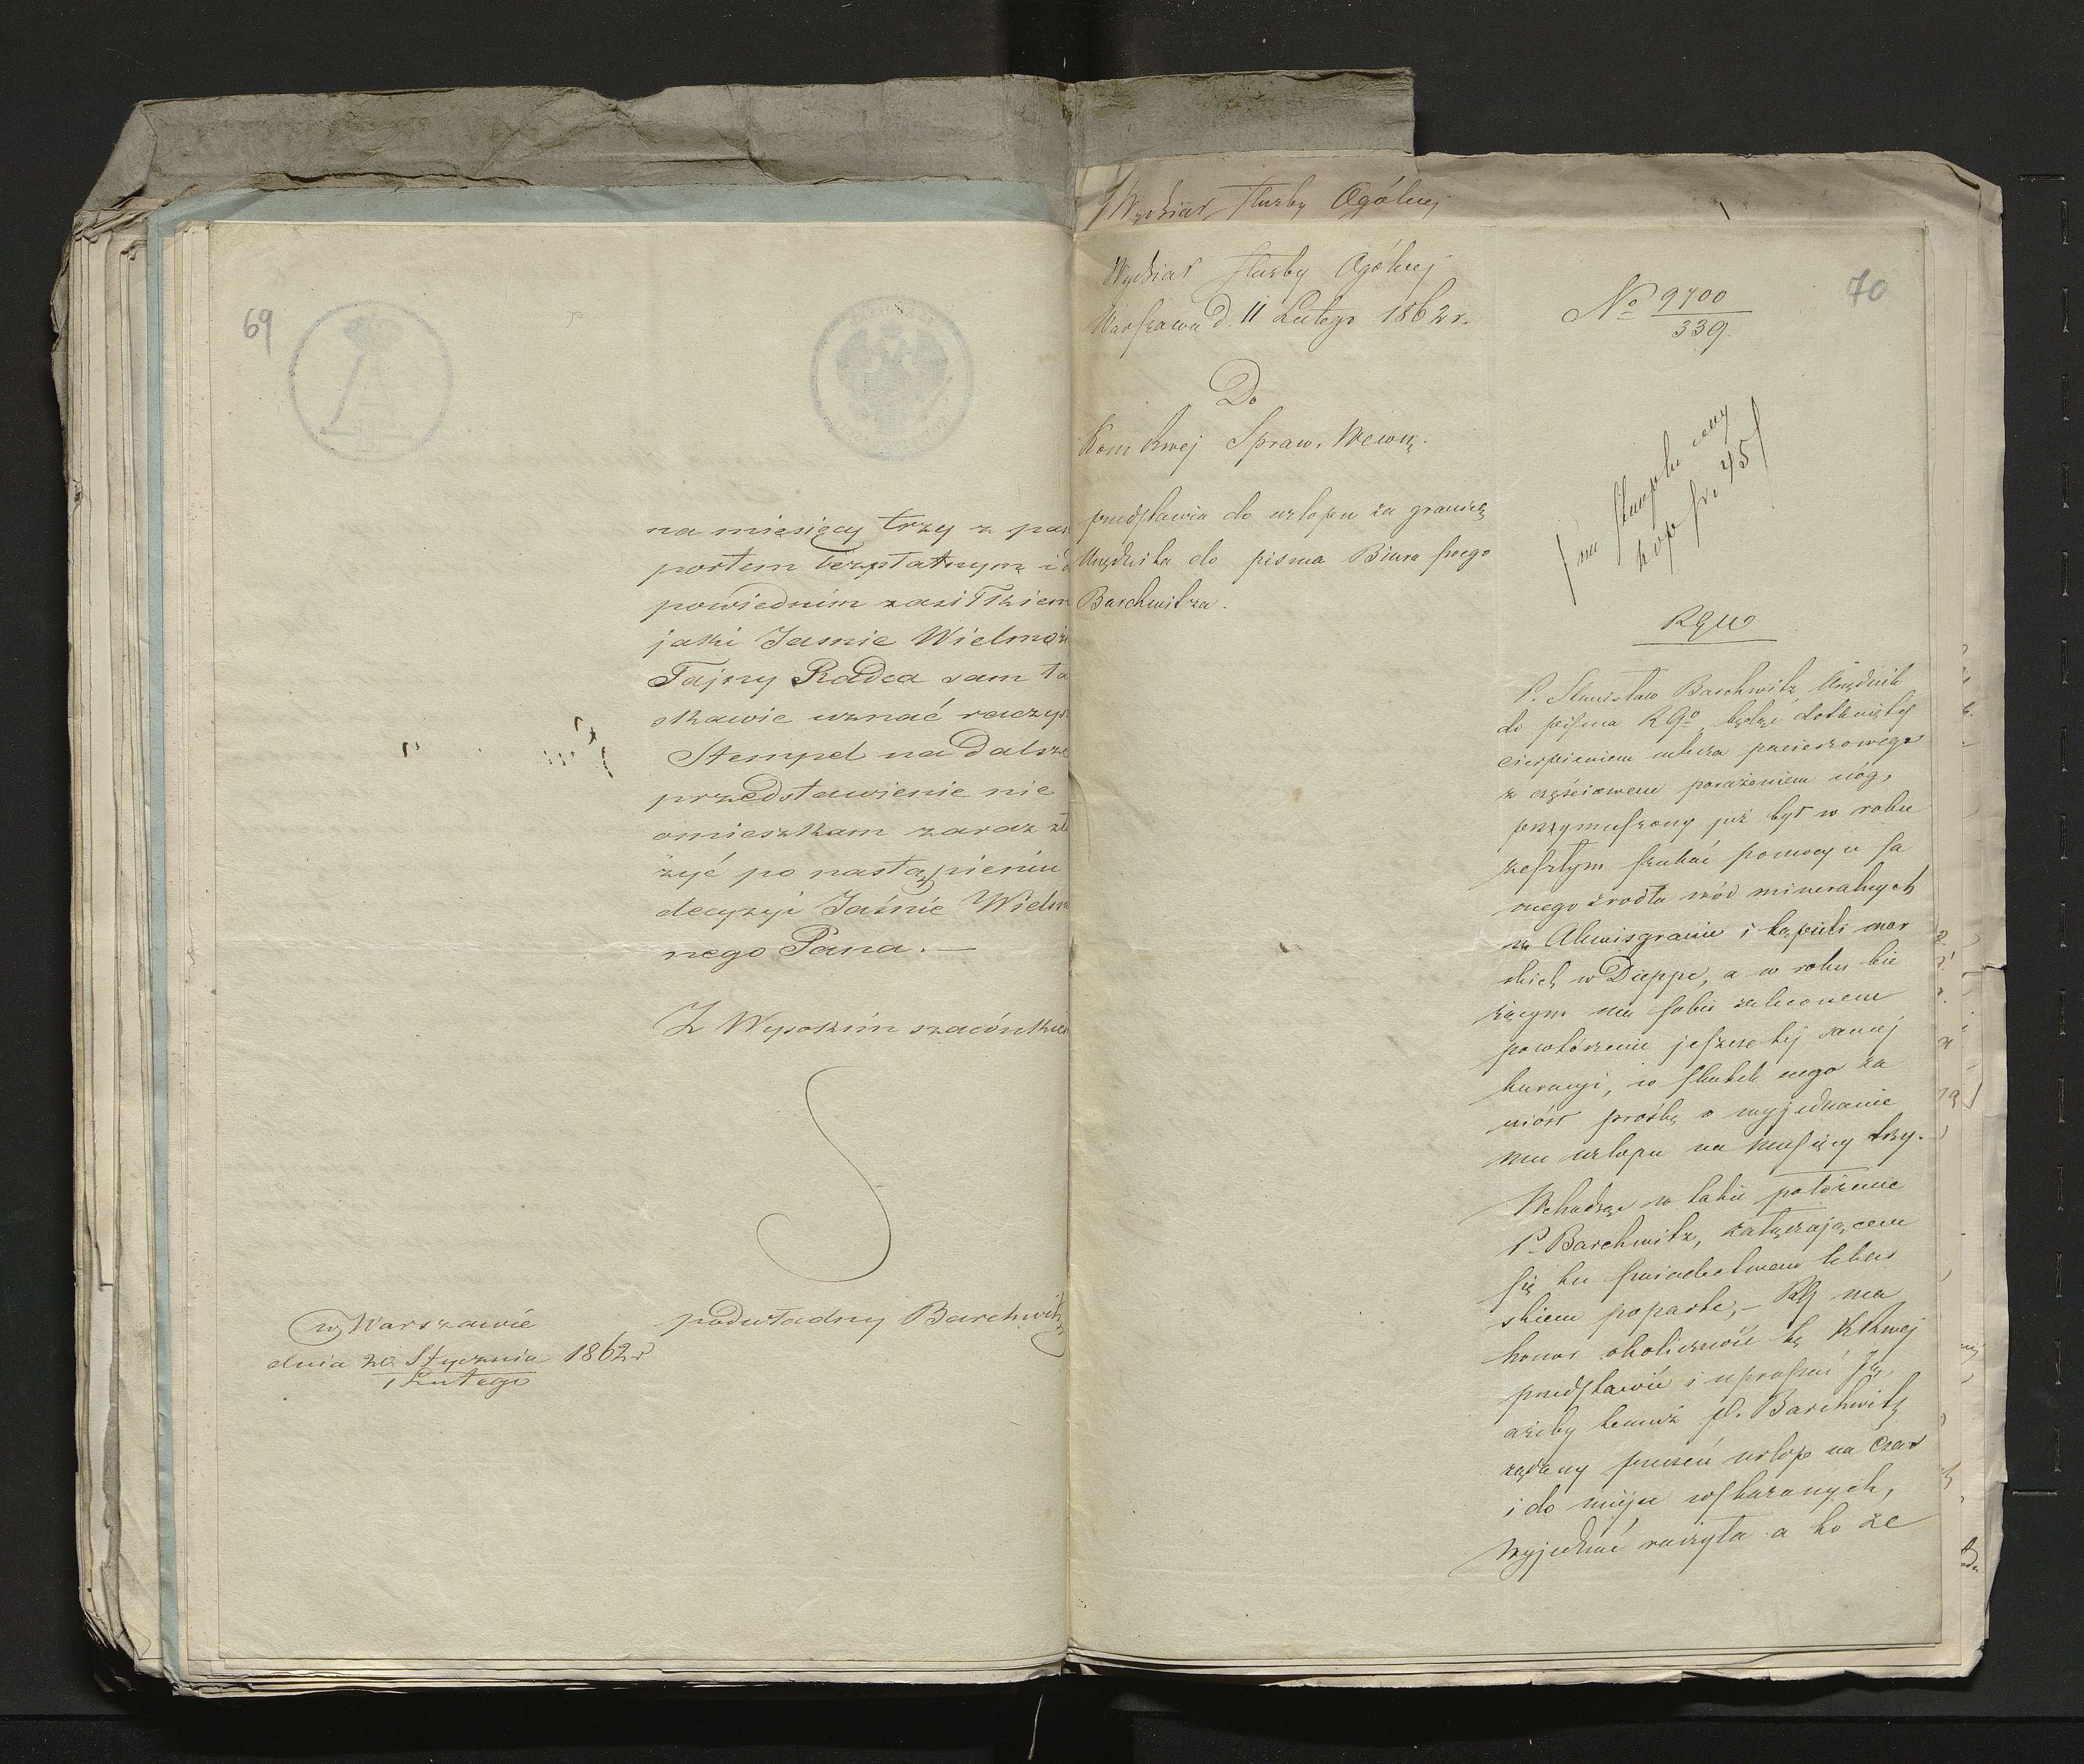 69
na miesięcy trzy z pas
portem bezpłatnym i o
powiednim zasiłkiem
jaki Jasnie Wielmoż
Tajny Radca sam ła
skawie uznać raczy
Stempel na dalsze
przedstawienie nie
omieszkam zaraz zło
żyć po nastąpieniu
decyzyi Jaśnie Wielm
nego Pana. —
Z Wysokim szacunkiem
podwładny Barchwitz
w Warszawie
dnia 20 Stycznia 1862 r
1 Lutego
Wydział Służby Ogólnej
Wydział Służby Ogólnej
Warszawa d. 11 Lutego 1862 r.
Do
Kom Rwej Spraw. Wewnę.
przedstawia do urlopu za granicę
Urzędnika do pisma Biura swego
Barchwitza.
70
No 9700
339.
/na stemplu ceny
kop sr. 45/
RGuo
P. Stanisław Barchwitz Urzędnik
do pisma RGo będąc dotknięty
cierpieniem mlecza pacierzowego
z częściowem porażeniem nóg,
przymuszony już był w roku
zeszłym szukać pomocy u sa
mego źrodła wód mineralnych
w Akwisgranie i kąpieli mor
skich w Dieppe, a w roku bie
żącym ma sobie zalecone
powtórzenie jeszcze tej samej
kuracyi, w skutek czego za
niósł prośbę o wyjednanie
mu urlopu na miesięcy trzy.
Wchodząc w takie położenie
P. Barchwitz, załączającem
się tu świadectwem lekar
skiem poparte, – RG ma
honor okoliczność tę KRwej
przedstawić i uprosić Ją
ażeby temuż P. Barchwitz
żądany przezeń urlop na czas
i do miejsc wskazanych,
wyjednać raczyła a to ze